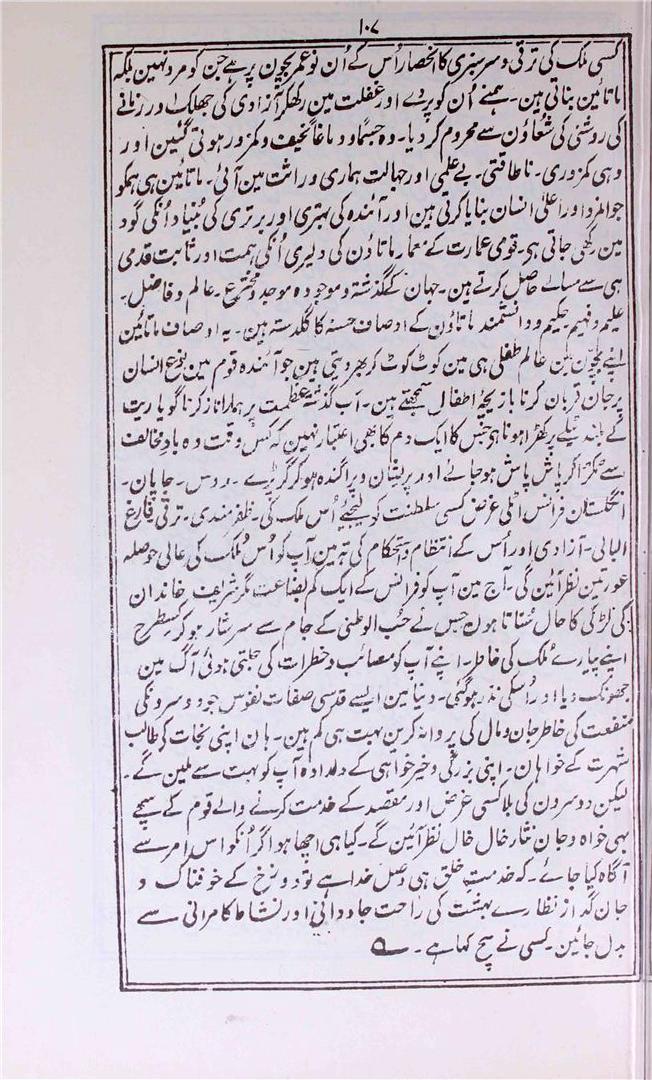 ۱۰۷
کسی ملک کی ترقی و سرسبزی کا انحصار اُس کے اُن نو عمر بچون پر ہے جن کو مرد نہین بلکہ
مائین بناتی ہین۔ ہمنے اُن کو پردے اور غفلت مین رکھکر آزادی کی جھلک اور زمانے
کی روشنی کی شعاؤن سے محروم کر دیا۔ وہ جسماً و دماغاً نحیف و کمزور ہوتی گئین اور
وہی کمزوری۔ ناطاقتی۔ بے علمی اور جہالت ہماری وراثت مین آئی۔ مائین ہی ہمکو
جوانمرد اور اعلیٰ انسان بنایا کرتی ہین اور آئندہ کی بہتری اور برتری کی بُنیاد اُنکی گود
مین رکھی جاتی ہی۔ قومی عمارت کے معمار ماتاؤن کی دلیری اُنکی ہمت اور ثابت قدمی
ہی سے مسالے حاصل کرتے ہین۔ جہان کے گذشتہ و موجودہ موجد و مخترع۔ عالم و فاضل۔
علیم و فہیم۔ حکیم و دانشمند ماتاؤن کے اوصاف حسنہ کا گلدستہ ہین۔ یہ اوصاف ماتائین
اپنے بچون مین عالم طفلی ہی مین کوٹ کوٹ کر بھر دیتی ہین جو آئندہ قوم مین نوع انسان
پر جان قربان کرنا بازیچۂ اطفال سمجھتے ہین۔ اب گذشتہ عظمت پر ہمارا ناز کرنا گویا ریت
کے بلند ٹیلے پر کھڑا ہونا ہو جس کا ایک دم کا بھی اعتبار نہین کہ کس وقت وہ بادِ مخالف
سے ٹکڑا کر پاش پاش ہو جائے اور پریشان و پراگندہ ہو کر گر پڑے۔ روس۔ جاپان۔
انگلستان فرانس اٹلی غرض کسی سلطنت کو لیجئے اُس ملک کی۔ ظفرمندی۔ ترقی فارغ
البالی۔ آزادی اور اُس کے انتظام و استحکام کی تہ مین آپ کو اُس مُلک کی عالی حوصلہ
عورتین نظر آئین گی۔ آج مین آپ کو فرانس کے ایک کم بضاعت مگر شریف خاندان
کی لڑکی کا حال سُناتا ہون جس نے حُب الوطنی کے جام سے سرشار ہو کر کسطرح
اپنے پیارے مُلک کی خاطر۔ اپنے آپ کو مصائب و خطرات کی جلتی ہوئی آگ مین
جھونک دیا اور اُسکی نذر ہوگئی۔ دنیا مین ایسے قدسی صفات نفوس جو دوسرونکی
منفعت کی خاطر جان و مال کی پروا نہ کرین بہت ہی کم ہین۔ ہان اپنی نجات کی طالب
شہرت کے خواہان۔ اپنی بزرگی و خیر خواہی کے دلدادہ آپ کو بہت سے ملین گے۔
لیکن دوسرون کی بلا کسی غرض اور مقصد کے خدمت کرنے والے قوم کے سچے
بہی خواہ و جان نثار خال خال نظر آئین گے۔ کیا ہی اچھا ہو اگر اُنکو اس امر سے
آگاہ کیا جائے۔ کہ خدمتِ خلق ہی وصل خدا ہے تو دوزخ کے خوفناک و
جان گداز نظارے بہشت کی راحت جاودانی اور نشاط کامرانی سے
بدل جائین۔ کسی نے سچ کہا ہے۔ ؎